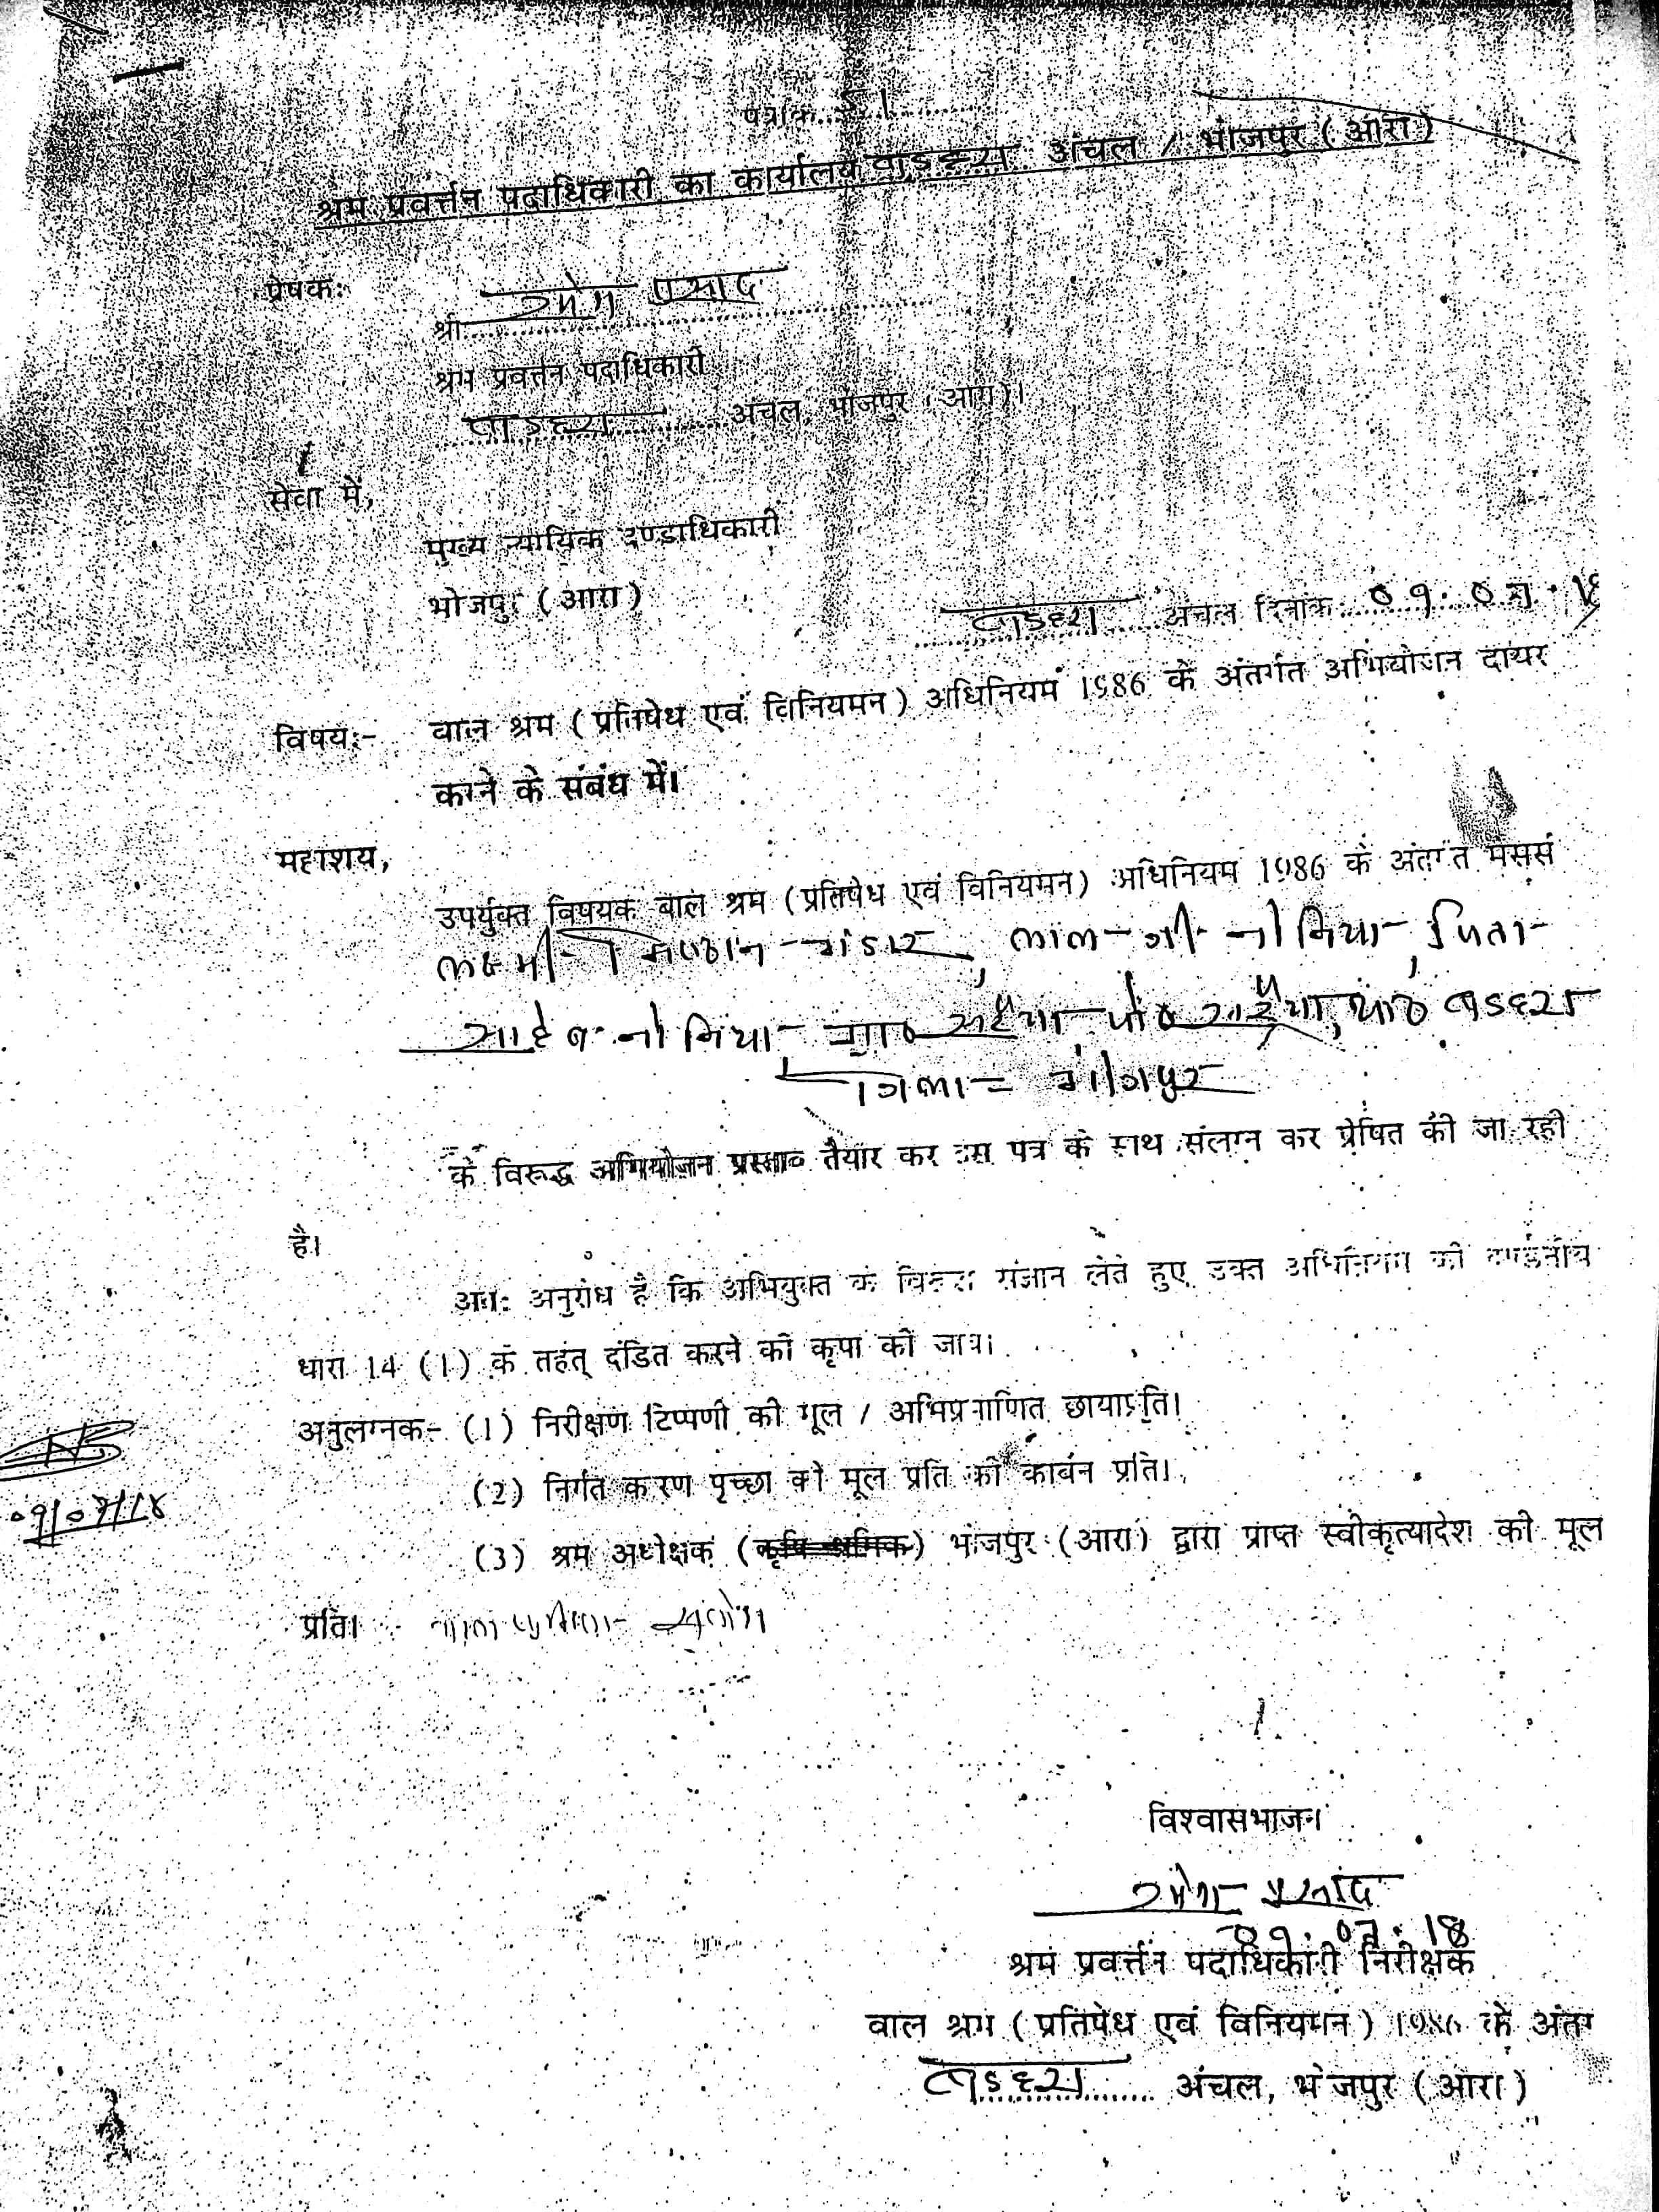 पत्रांक 51
श्रम प्रवर्त्तन पदाधिकारी का कार्यालय बड़हरा अंचल / भोजपुर (आरा)
प्रेषकः
श्री प्रसाद
श्रम प्रवर्त्तन पदाधिकारी
बड़हरा अंचल, भोजपुर (आरा)।
सेवा में,
मुख्य न्यायिक दण्डाधिकारी
भोजपुर (आरा)
बड़हरा अंचल दिनांक 09.07.18
विषयः- बाल श्रम (प्रतिषेध एवं विनियमन) अधिनियम 1986 के अंतर्गत अभियोजन दायर
करने के संबंध में।
महाशय,
उपर्युक्त विषयक बाल श्रम (प्रतिषेध एवं विनियमन) अधिनियम 1986 के अंतर्गत मेसर्स
लक्ष्मी मिष्ठान भंडार, लाल जी नोनिया, पिता-
नोनिया बड़हरा
जिला- भोजपुर
के विरूद्ध अभियोजन प्रस्ताव तैयार कर इस पत्र के साथ संलग्न कर प्रेषित की जा रही
है।
अतः अनुरोध है कि अभियुक्त के विरूद्ध संज्ञान लेते हुए उक्त अधिनियम की दण्डनीय
धारा 14 (1) के तहत् दंडित करने की कृपा की जाय।
अनुलग्नक- (1) निरीक्षण टिप्पणी की मूल / अभिप्रमाणित छायाप्रति।
(2) निर्गत कारण पृच्छा की मूल प्रति की कार्बन प्रति।
09/07/18
(3) श्रम अधीक्षक (कृषि श्रमिक) भोजपुर (आरा) द्वारा प्राप्त स्वीकृत्यादेश की मूल
प्रति।
विश्वासभाजन
प्रसाद
09.07.18
श्रम प्रवर्त्तन पदाधिकारी निरीक्षक
बाल श्रम (प्रतिषेध एवं विनियमन) 1986 के अंतर्ग
बड़हरा अंचल, भोजपुर (आरा)